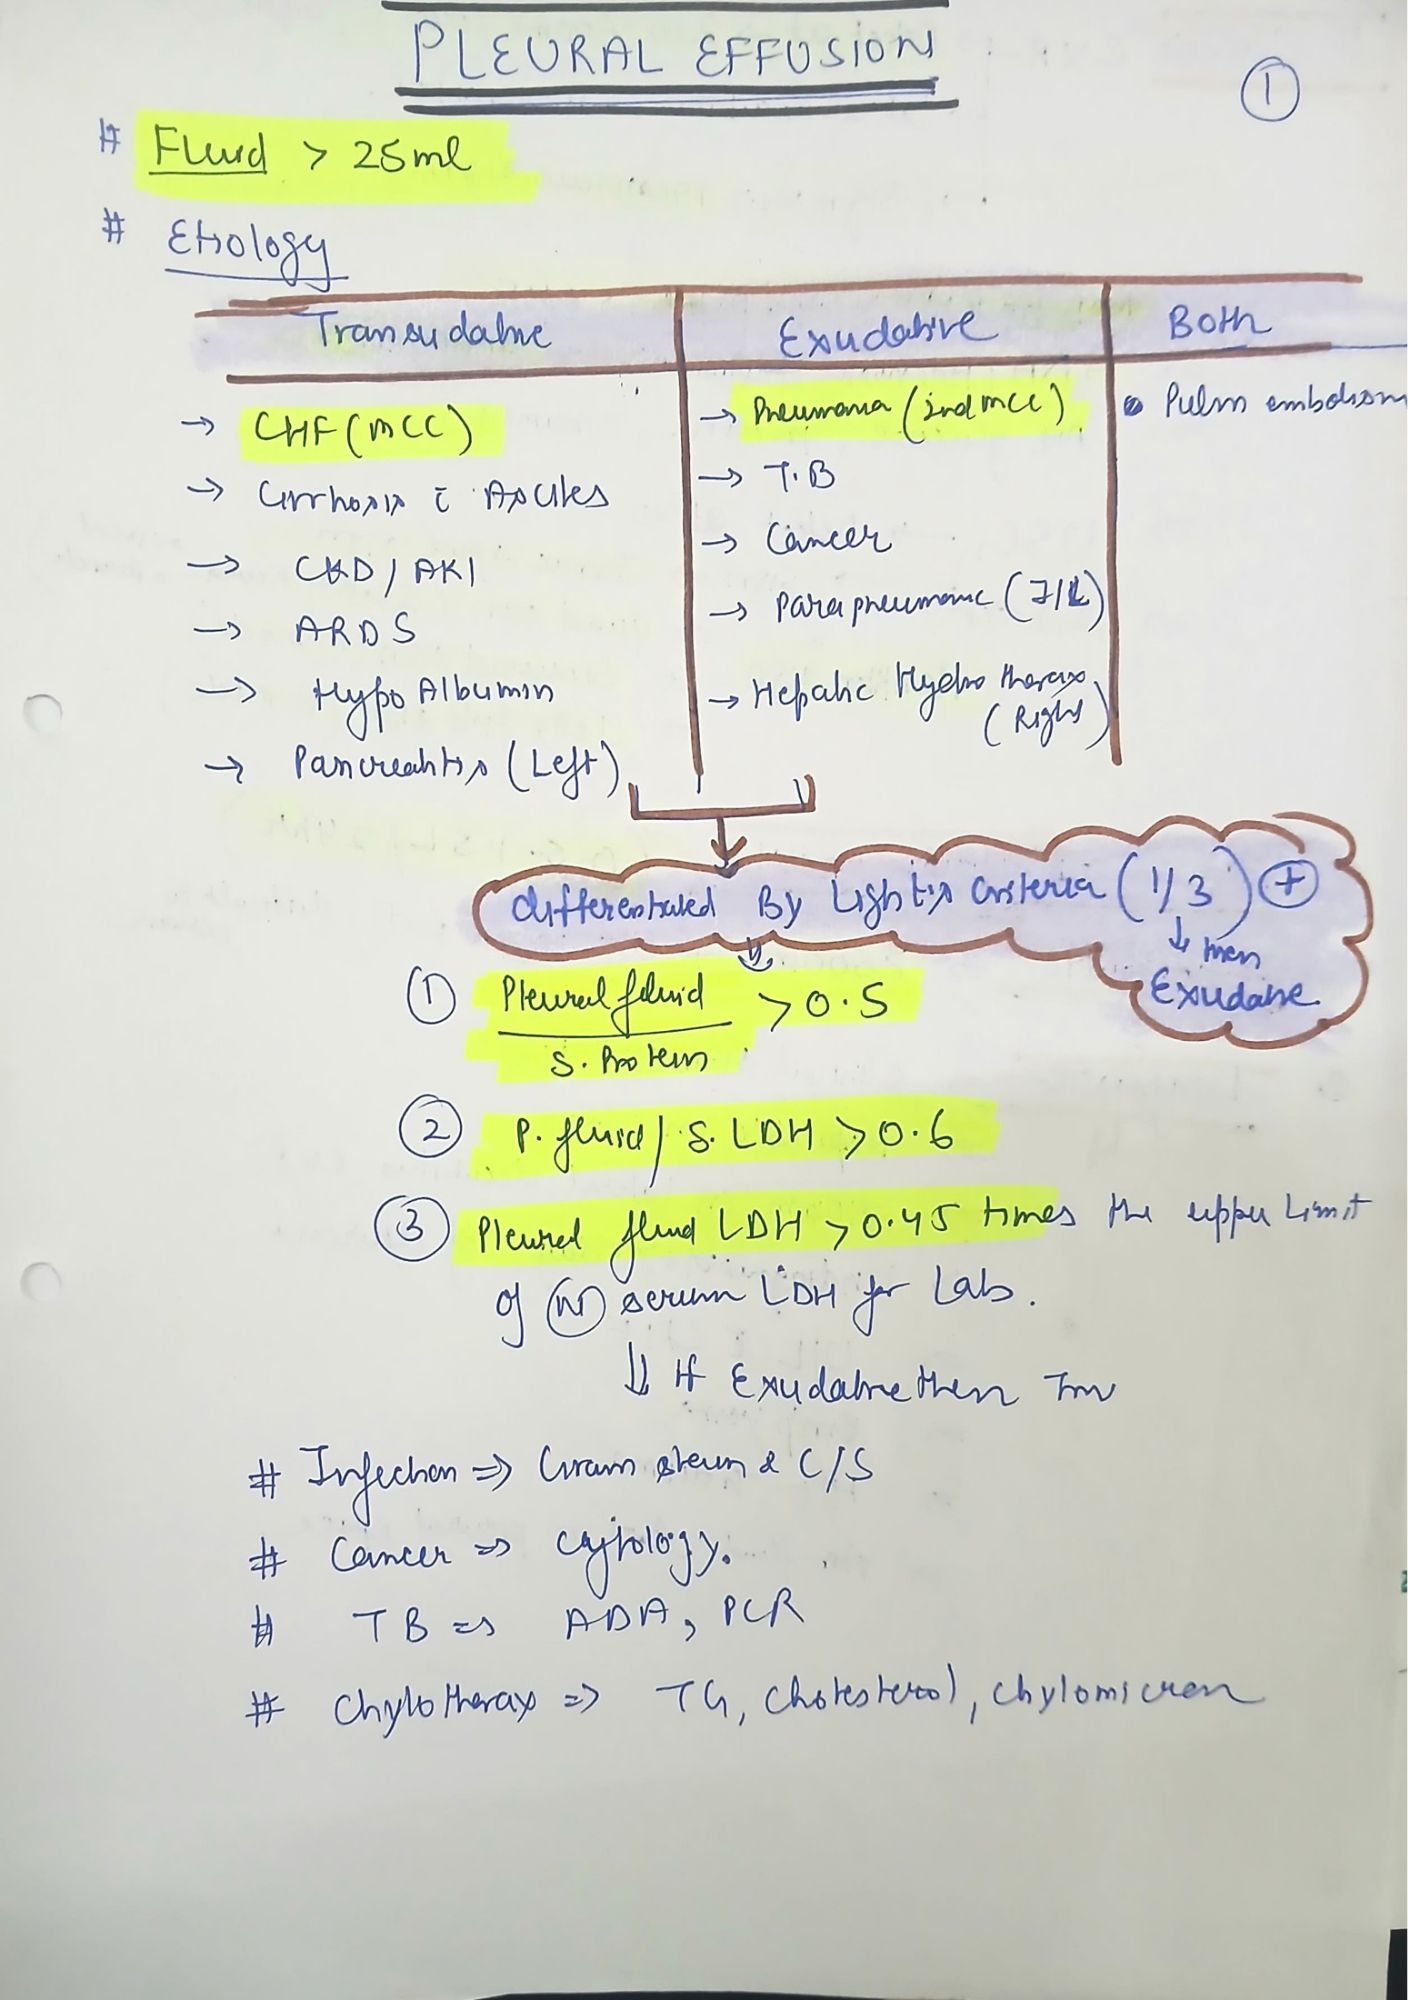 PLEURAL EFFUSION
1
# Fluid > 25ml
# Etiology
Transudative
Exudative
Both
→ CHF (MCC)
→ Cirrhosis c̄ Ascites
→ CKD / AKI
→ ARDS
→ Hypo Albumin
→ Pancreatitis (Left)
→ Pneumonia (2nd MCC)
→ T.B
→ Cancer
→ Parapneumonic
→ Hepatic Hydro thorax
(Right)
• Pulm embolism
differentiated By Light's Criteria (1/3) +
↓ then
Exudative
① Pleural fluid > 0.5
S. Protein
② P. fluid / S. LDH > 0.6
③ Pleural fluid LDH > 0.45 times the upper Limit
of (N) serum LDH for Lab.
⇓ If Exudative then
# Infection ⇒ Gram stain & C/S
# Cancer ⇒ cytology.
# TB ⇒ ADA, PCR
# Chylothorax ⇒ TG, Cholesterol, chylomicron